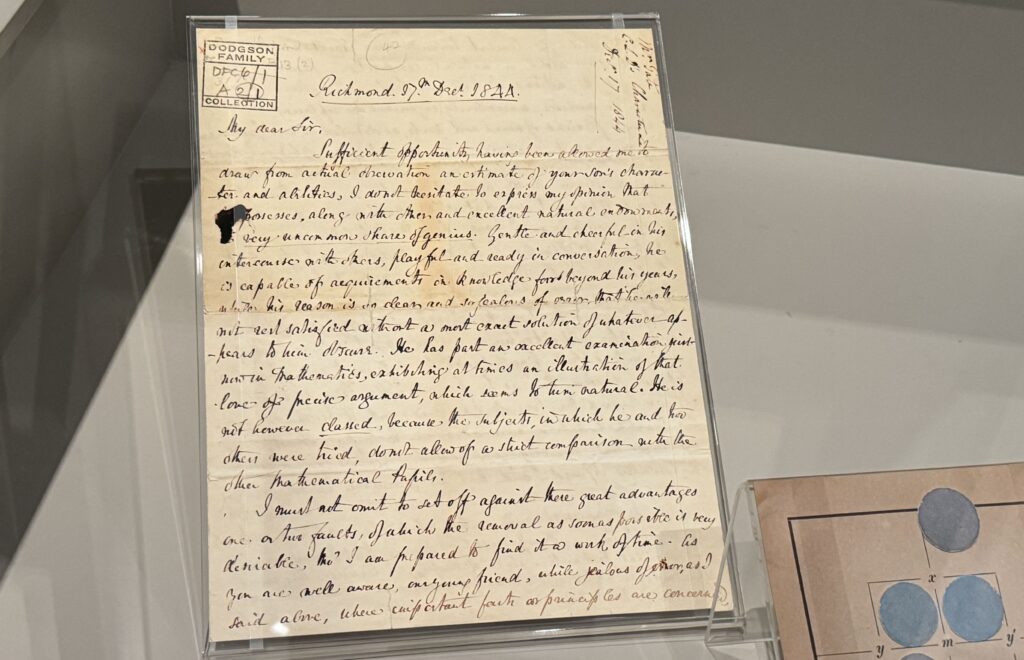 DODGSON
FAMILY
DFC6/1
A2(1)
COLLECTION
13 (2)
42
Richmond. 17th Decr. 1844.
My dear Sir,
Sufficient opportunity having been allowed me to
draw from actual observation an estimate of your son's charac-
-ter and abilities, I do not hesitate to express my opinion that
possesses, along with other and excellent natural endowments,
very uncommon share of genius. Gentle and cheerful in his
intercourse with others, playful and ready in conversation, he
is capable of acquirements in knowledge far beyond his years,
while his reason is so clear and so jealous of error, that he will
not rest satisfied without a most exact solution of whatever ap-
-pears to him obscure. He has past an excellent examination just
now in Mathematics, exhibiting at times an illustration of that
love of precise argument, which seems to him natural. He is
not however classed, because the subjects, in which he and two
others were tried, do not allow of a strict comparison with the
other Mathematical Pupils.
I must not omit to set off against these great advantages
one or two faults, of which the removal as soon as possible is very
desirable, tho' I am prepared to find it a work of time. As
you are well aware, our young friend, while jealous of error, as I
said above, where important faith or principles are concerned
1844
x
y m y'